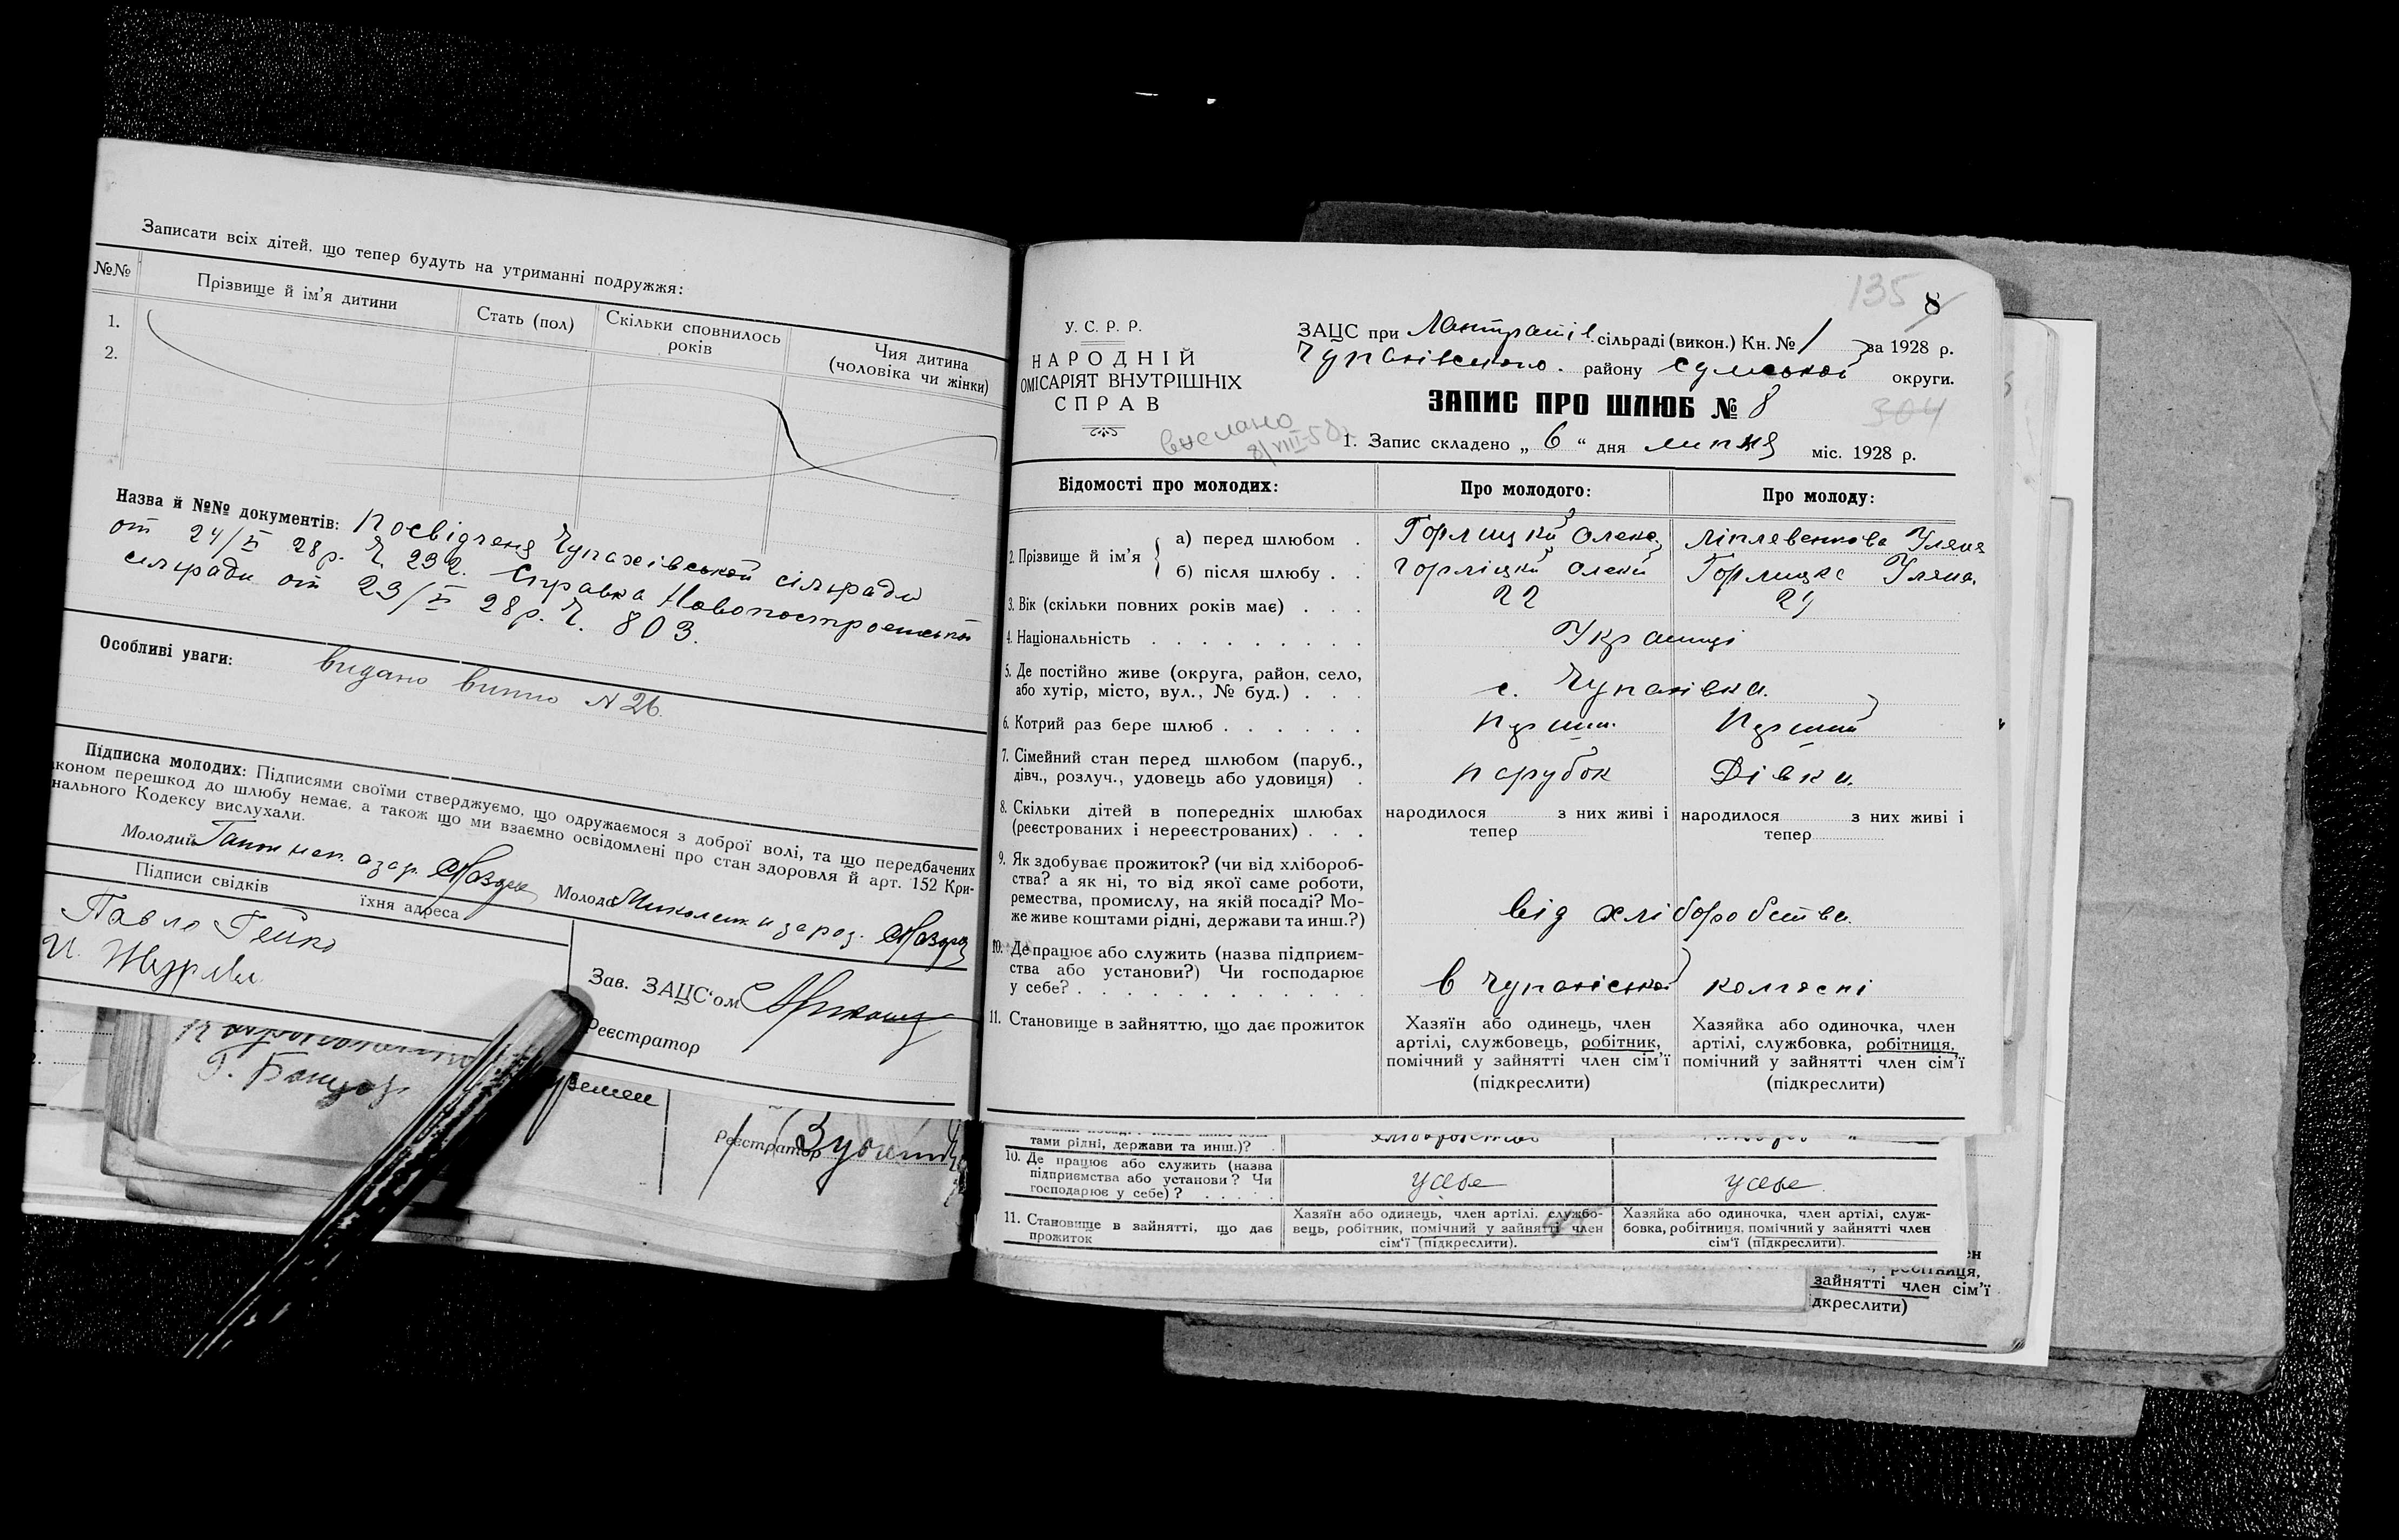 Записати всіх дітей, що тепер будуть на утриманні подружжя:
№№ Прізвище й ім'я дитини Стать (пол) Скільки сповнилось років Чия дитина (чоловіка чи жінки)
1.
2.
Назва й №№ документів: Посвідченя Чупахівської сільради
от 24/VI 28р. Ч. 232. Справка
сільради от 23/VI 28р. Ч. 803.
Особливі уваги: видано N 26.
Підписка молодих: Підписями своїми стверджуємо, що одружаємося з доброї волі, та що передбачених
коном перешкод до шлюбу немає, а також що ми взаємно освідомлені про стан здоровля й арт. 152 Кри-
нального Кодексу вислухали.
Молодий Молода
Підписи свідків їхня адреса
Павло Гейко
Зав. ЗАЦС'ом
Реєстратор
Реєстратор
135 8
У. С. Р. Р.
НАРОДНІЙ
ОМІСАРІЯТ ВНУТРІШНІХ
СПРАВ
ЗАЦС при сільраді (викон.) Кн. № 1 за 1928 р.
району Сумської округи.
ЗАПИС ПРО ШЛЮБ № 8
304
вислано
8/VIII-58
1. Запис складено „ 6 “ дня липня міс. 1928 р.
Відомості про молодих: Про молодого: Про молоду:
2. Прізвище й ім'я а) перед шлюбом Уляна
б) після шлюбу Уляна
3. Вік (скільки повних років має) 22 21
4. Національність Українці
5. Де постійно живе (округа, район, село,
або хутір, місто, вул., № буд.) с. Чупахівка.
6. Котрий раз бере шлюб перший
7. Сімейний стан перед шлюбом (паруб.,
дівч., розлуч., удовець або удовиця) парубок Дівка.
8. Скільки дітей в попередніх шлюбах
(реєстрованих і нереєстрованих)
народилося з них живі і
тепер
народилося з них живі і
тепер
9. Як здобуває прожиток? (чи від хлібороб-
ства? а як ні, то від якої саме роботи,
ремества, промислу, на якій посаді? Мо-
же живе коштами рідні, держави та инш.?)
від хліборобства.
10. Де працює або служить (назва підприєм-
ства або установи?) Чи господарює
у себе?
в
11. Становище в зайняттю, що дає прожиток
Хазяїн або одинець, член
артілі, службовець, робітник,
помічний у зайнятті член сім'ї
(підкреслити)
Хазяйка або одиночка, член
артілі, службовка, робітниця,
помічний у зайнятті член сім'ї
(підкреслити)
тами рідні, держави та инш.)?
10. Де працює або служить (назва
підприємства або установи? Чи
господарює у себе)?
усебе усебе
11. Становище в зайнятті, що дає
прожиток
Хазяїн або одинець, член артілі, службо-
вець, робітник, помічний у зайнятті член
сім'ї (підкреслити).
Хазяйка або одиночка, член артілі, служ-
бовка, робітниця, помічний у зайнятті член
сім'ї (підкреслити).
зайнятті член сім'ї
дкреслити)